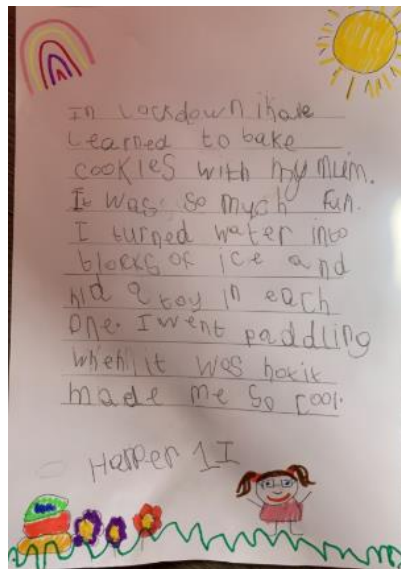 In Lockdown i have
Learned to bake
cookies with my mum.
It was so much fun.
I turned water into
blocks of ice and
hid a toy in each
one. I went paddling
when it was hot it
made me so cool.
Harper 1I